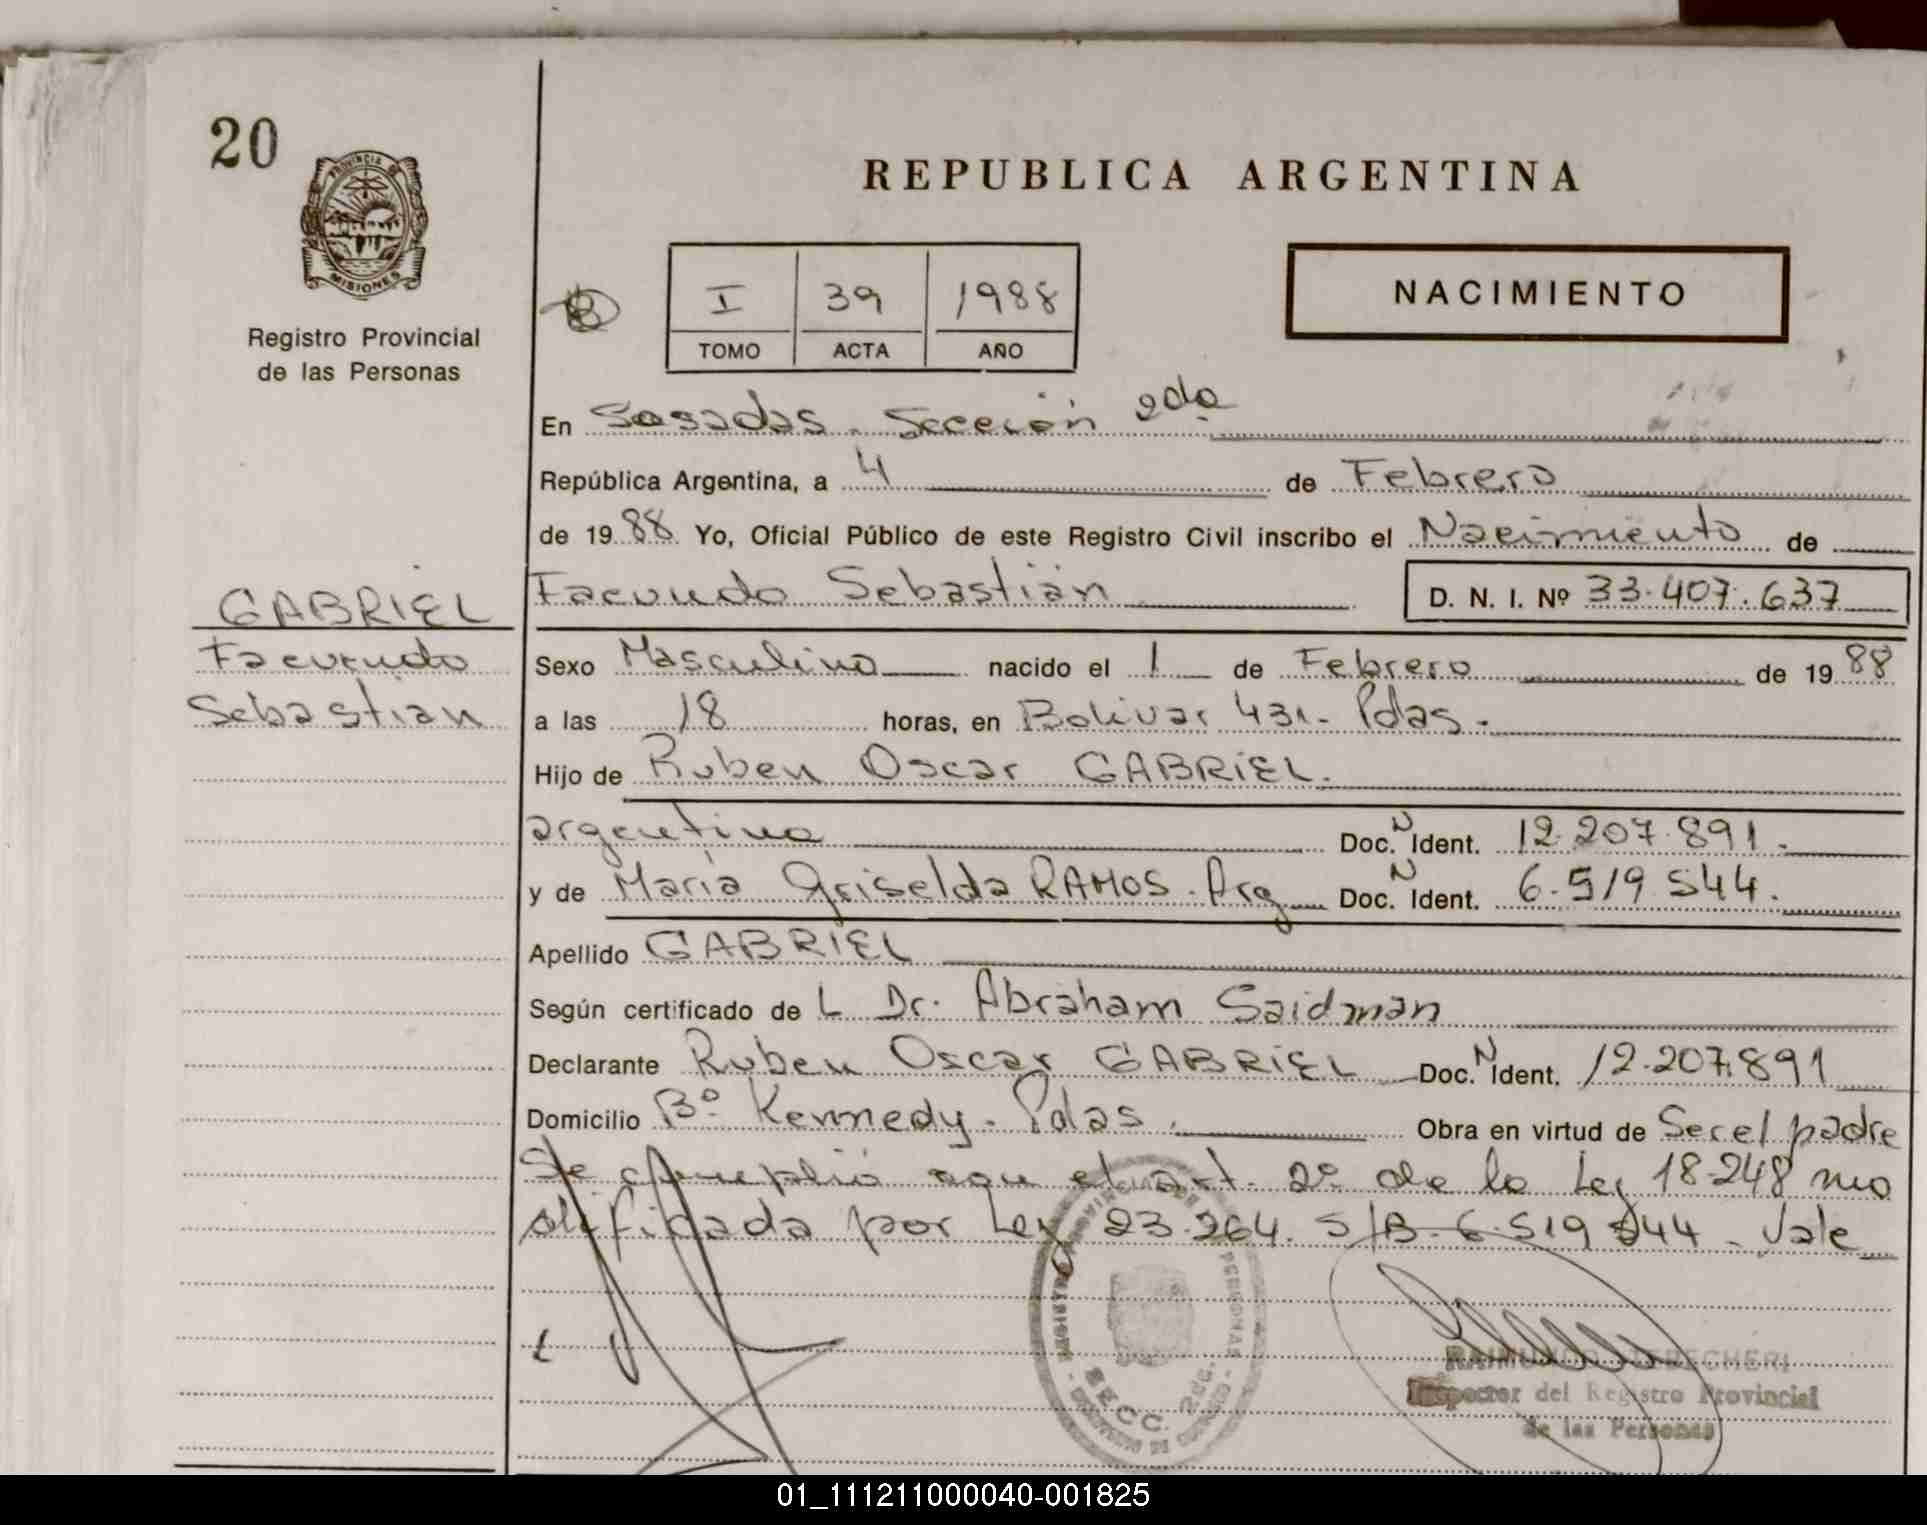 20
PROVINCIA DE
MISIONES
Registro Provincial
de las Personas
REPUBLICA ARGENTINA
I 39 1988
TOMO ACTA AÑO
NACIMIENTO
En Posadas. Sección 2da
República Argentina, a 4 de Febrero
de 1988 Yo, Oficial Público de este Registro Civil inscribo el Nacimiento de
Facundo Sebastián D. N. I. Nº 33.407.637
GABRIEL
Facundo
Sebastián
Sexo Masculino nacido el 1 de Febrero de 1988
a las 18 horas, en Bolivar 431- Pdas.
Hijo de Ruben Oscar GABRIEL.
argentino Doc. N Ident. 12.207.891.
y de María Griselda RAMOS. Arg Doc. N Ident. 6.519.544.
Apellido GABRIEL
Según certificado de L Dr. Abraham Saidman
Declarante Ruben Oscar GABRIEL Doc. N Ident. 12.207.891
Domicilio Bº Kennedy. Pdas. Obra en virtud de Ser el padre
Se cumplió con el art. 2º de la Ley 18.248 mo
dificada por Ley 23.264. S/B. 6.519.544 - Vale
SECC. 2da.
Inspector del Registro Provincial
de las Personas
01_111211000040-001825